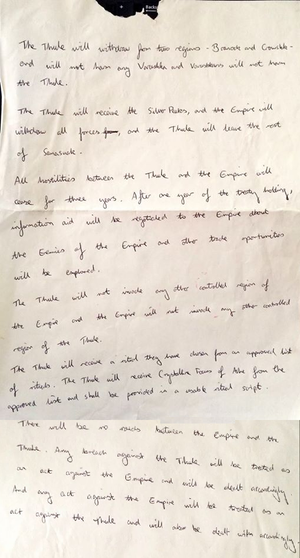 The Thule will withdraw from two regions - and
and will not harm any and will not harm
the Thule.
The Thule will receive the Silver Plates, and the Empire will
withdraw all forces, and the Thule will leave the rest
of
All hostilities between the Thule and the Empire will
cease for three years. After one year of the treaty holding,
information aid will be to the Empire about
the Enemies of the Empire and other trade opportunities
will be explored.
The Thule will not invade any other controlled region of
the Empire and the Empire will not invade any other controlled
region of the Thule.
The Thule will receive a ritual they have chosen from an approved list
of rituals. The Thule will receive Crystalline Focus of from the
approved list and shall be provided in a usable ritual script.
There will be no raids between the Empire and the
Thule. Any breach against the Thule will be treated as
an act against the Empire and will be dealt accordingly.
And any act against the Empire will be treated as an
act against the Thule and will also be dealt with accordingly.